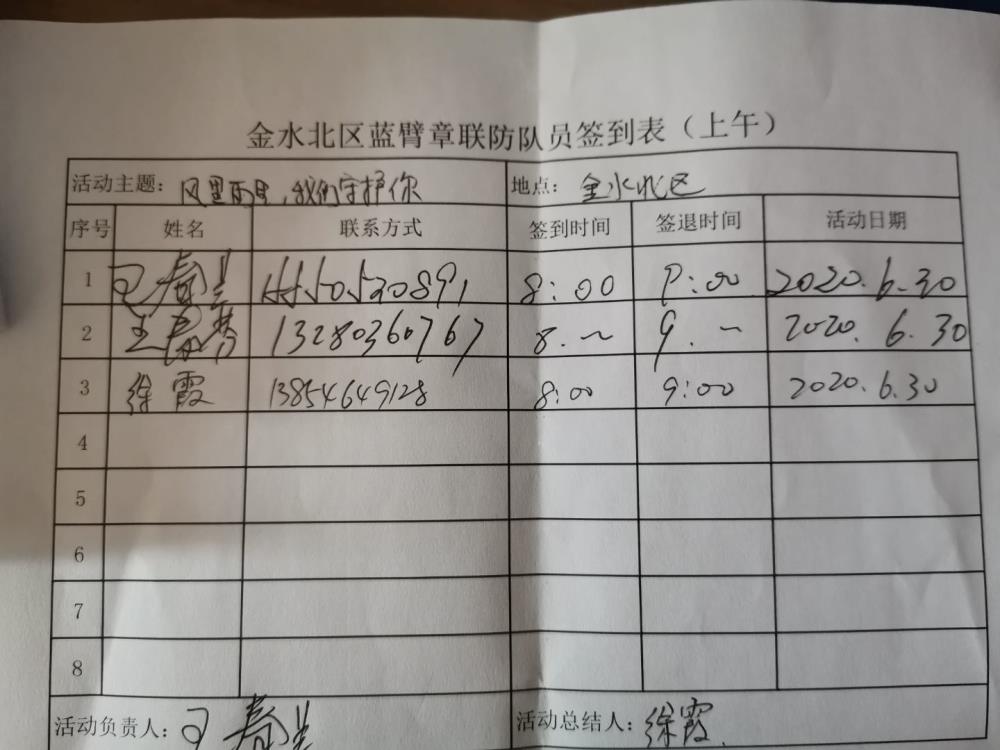 金水北区蓝臂章联防队员签到表（上午）
活动主题：风里雨里，我们守护你 地点：金水北区
序号 姓名 联系方式 签到时间 签退时间 活动日期
1 8:00 9:00 2020.6.30
2 王春梦 13280360767 8.~ 9.~ 2020.6.30
3 徐霞 13854649128 8:00 9:00 2020.6.30
4
5
6
7
8
活动负责人： 活动总结人：徐霞